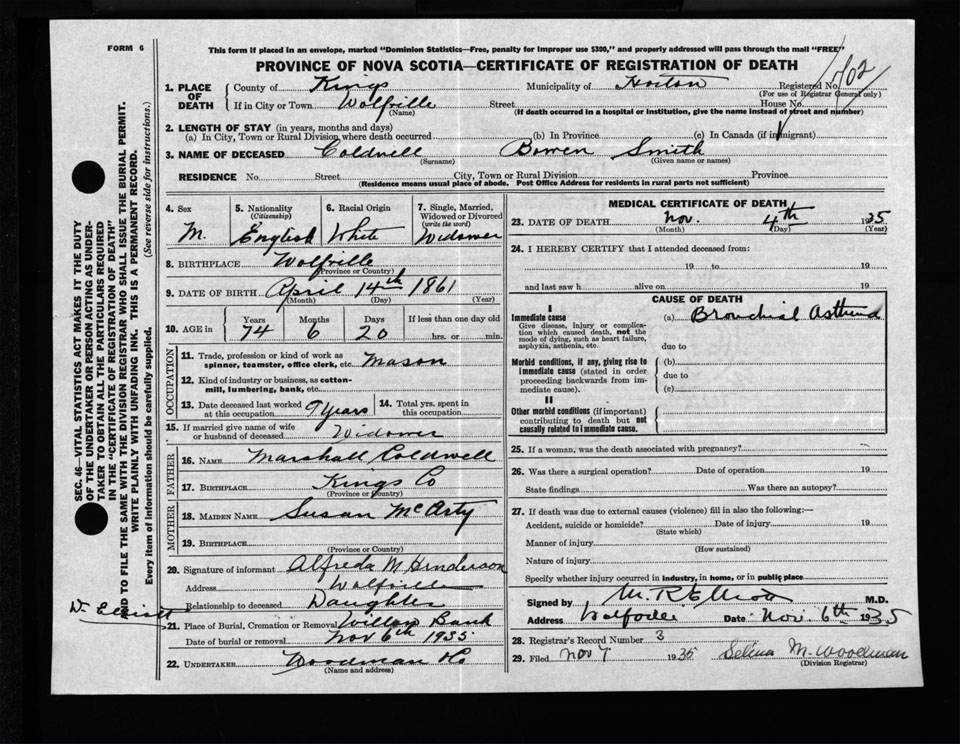 FORM 6
This form if placed in an envelope, marked "Dominion Statistics—Free, penalty for improper use $300," and properly addressed will pass through the mail "FREE"
PROVINCE OF NOVA SCOTIA—CERTIFICATE OF REGISTRATION OF DEATH
1. PLACE OF DEATH County of Kings Municipality of Horton Registered No. 702
(For use of Registrar General only)
If in City or Town Wolfville Street House No.
(Name) (If death occurred in a hospital or institution, give the name instead of street and number)
2. LENGTH OF STAY (in years, months and days)
(a) In City, Town or Rural Division where death occurred (b) In Province (c) In Canada (if immigrant)
3. NAME OF DECEASED Coldwell Bowen Smith
(Surname) (Given name or names)
RESIDENCE No. Street City, Town or Rural Division Province
(Residence means usual place of abode. Post Office Address for residents in rural parts not sufficient)
4. Sex M.
5. Nationality (Citizenship) English
6. Racial Origin White
7. Single, Married, Widowed or Divorced (write the word) Widower
8. BIRTHPLACE Wolfville
(Province or Country)
9. DATE OF BIRTH April 14th 1861
(Month) (Day) (Year)
10. AGE in Years Months Days If less than one day old
74 6 20 hrs. or min.
OCCUPATION
11. Trade, profession or kind of work as spinner, teamster, office clerk, etc. Mason
12. Kind of industry or business, as cotton-mill, lumbering, bank, etc.
13. Date deceased last worked at this occupation 9 years
14. Total yrs. spent in this occupation
15. If married give name of wife or husband of deceased Widower
FATHER
16. NAME Marshall Coldwell
17. BIRTHPLACE Kings Co
(Province or Country)
MOTHER
18. MAIDEN NAME Susan McArty
19. BIRTHPLACE
(Province or Country)
20. Signature of informant Alfreda M Henderson
Address Wolfville
Relationship to deceased Daughter
21. Place of Burial, Cremation or Removal Willow Bank
Date of burial or removal Nov 6th 1935
22. UNDERTAKER Woodman Co
(Name and address)
MEDICAL CERTIFICATE OF DEATH
23. DATE OF DEATH Nov. 4th 1935
(Month) (Day) (Year)
24. I HEREBY CERTIFY that I attended deceased from:
19 to 19
and last saw h alive on 19
CAUSE OF DEATH
I
Immediate cause (a) Bronchial Asthma
Give disease, injury or complication which caused death, not the mode of dying, such as heart failure, asphyxia, asthenia, etc.
due to
Morbid conditions, if any, giving rise to immediate cause (stated in order proceeding backwards from immediate cause).
(b)
due to
(c)
II
Other morbid conditions (if important) contributing to death but not causally related to immediate cause.
25. If a woman, was the death associated with pregnancy?
26. Was there a surgical operation? Date of operation 19
State findings Was there an autopsy?
27. If death was due to external causes (violence) fill in also the following:—
Accident, suicide or homicide? Date of injury 19
(State which)
Manner of injury
(How sustained)
Nature of injury
Specify whether injury occurred in industry, in home, or in public place
Signed by M. R. Elliott M.D.
Address Wolfville Date Nov. 6th 1935
28. Registrar's Record Number 3
29. Filed Nov 7 1935 Selina M. Woodman
(Division Registrar)
SEC. 46—VITAL STATISTICS ACT MAKES IT THE DUTY
OF THE UNDERTAKER OR PERSON ACTING AS UNDER-
TAKER TO OBTAIN ALL THE PARTICULARS REQUIRED
IN THE "CERTIFICATE OF REGISTRATION OF DEATH"
AND TO FILE THE SAME WITH THE DIVISION REGISTRAR WHO SHALL ISSUE THE BURIAL PERMIT.
WRITE PLAINLY WITH UNFADING INK. THIS IS A PERMANENT RECORD.
Every item of information should be carefully supplied. (See reverse side for instructions.)
Dr Elliott